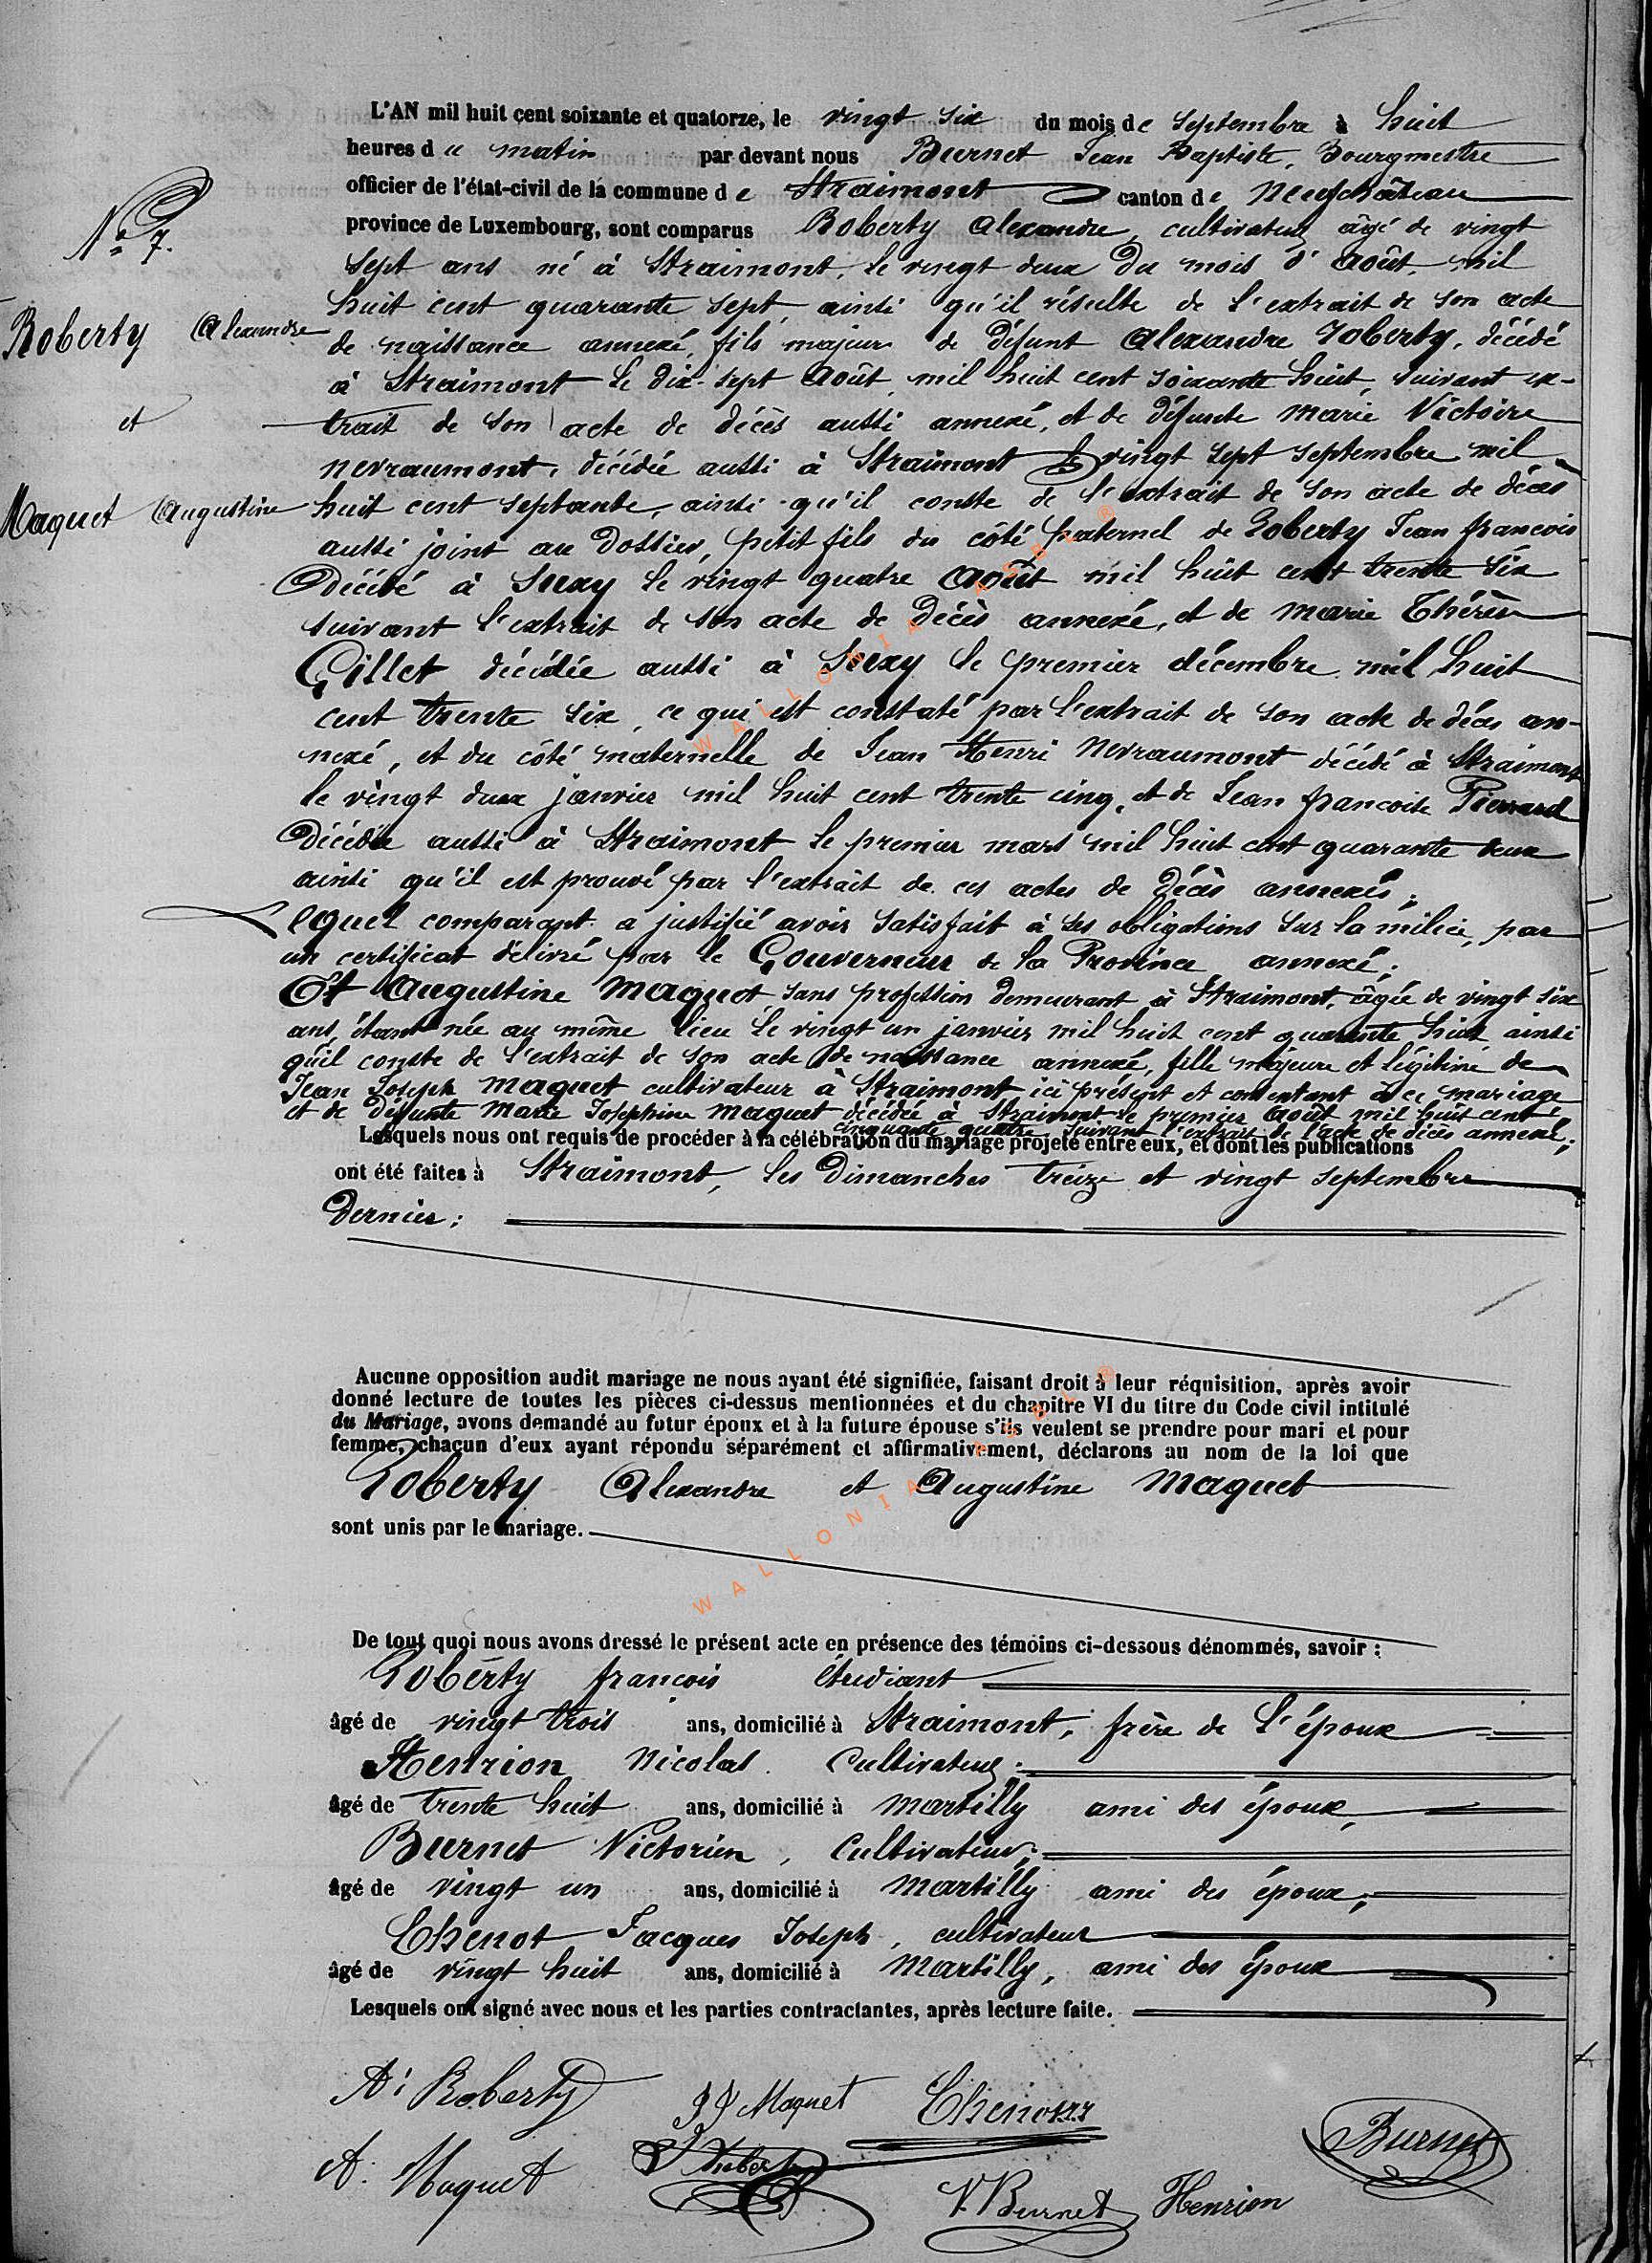 L'AN mil huit cent soixante et quatorze, le vingt six du mois de Septembre à huit
heures du matin par devant nous Burnet Jean Baptiste, Bourgmestre
officier de l'état-civil de la commune de Straimont canton de Neufchâteau
province de Luxembourg, sont comparus Roberty Alexandre, cultivateur âgé de vingt
sept ans né à Straimont, le vingt deux du mois d'Août, mil
huit cent quarante sept, ainsi qu'il résulte de l'extrait de son acte
de naissance annexé, fils majeur de défunt Alexandre Roberty, décédé
à Straimont le dix-sept Août mil huit cent soixante huit, suivant ex-
trait de son acte de décès aussi annexé, et de défunte Marie Victoire
Nevraumont, décédée aussi à Straimont le vingt sept septembre mil
huit cent septante, ainsi qu'il conste de l'extrait de son acte de décès
aussi joint au dossier, petit fils du côté paternel de Roberty Jean françois
Décédé à Suxy le vingt quatre Août mil huit cent trente six
suivant l'extrait de son acte de décès annexé, et de Marie Thérèse
Gillet décédée aussi à Suxy le premier décembre mil huit
cent trente six, ce qui est constaté par l'extrait de son acte de décès an-
nexé, et du côté maternelle de Jean Henri Nevraumont décédé à Straimont
le vingt deux janvier mil huit cent trente cinq, et de Jean françoise Pierrard
Décédée aussi à Straimont le premier mars mil huit cent quarante deux
ainsi qu'il est prouvé par l'extrait de ces actes de décès annexés;
lequel comparant a justifié avoir satisfait à ses obligations sur la milice, par
un certificat délivré par le Gouverneur de la Province annexé;
Et Augustine Maquet sans profession demeurant à Straimont, âgée de vingt six
ans, étant née au même lieu le vingt un janvier mil huit cent quarante huit ainsi
qu'il conste de l'extrait de son acte de naissance annexé, fille majeure et légitime de
Jean Joseph Maquet cultivateur à Straimont ici présent et consentant à ce mariage
et de défunte Marie Josephine Maquet décédée à Straimont le premier Août mil huit cent
cinquante quatre suivant l'extrait de l'acte de décès annexé;
Lesquels nous ont requis de procéder à la célébration du mariage projeté entre eux, et dont les publications
ont été faites à Straimont, les Dimanches treize et vingt septembre
Dernier;
N° 7.
Roberty Alexandre
et
Maquet Augustine
Aucune opposition audit mariage ne nous ayant été signifiée, faisant droit à leur réquisition, après avoir
donné lecture de toutes les pièces ci-dessus mentionnées et du chapitre VI du titre du Code civil intitulé
du Mariage, avons demandé au futur époux et à la future épouse s'ils veulent se prendre pour mari et pour
femme, chacun d'eux ayant répondu séparément et affirmativement, déclarons au nom de la loi que
Roberty Alexandre et Augustine Maquet
sont unis par le mariage.
De tout quoi nous avons dressé le présent acte en présence des témoins ci-dessous dénommés, savoir :
Roberty françois Étudiant
âgé de vingt trois ans, domicilié à Straimont, frère de l'époux
Henrion Nicolas. Cultivateur;
âgé de trente huit ans, domicilié à Martilly ami des époux,
Burnet Victorien, Cultivateur;
âgé de vingt un ans, domicilié à Martilly ami des époux;
Chenot Jacques Joseph, cultivateur
âgé de vingt huit ans, domicilié à Martilly, ami des époux
Lesquels ont signé avec nous et les parties contractantes, après lecture faite.
A: Roberty
JJ Maquet
Burnet
A: Maquet
V. Burnet
Henrion
WALLONIA ASBL ®
WALLONIA ASBL ®